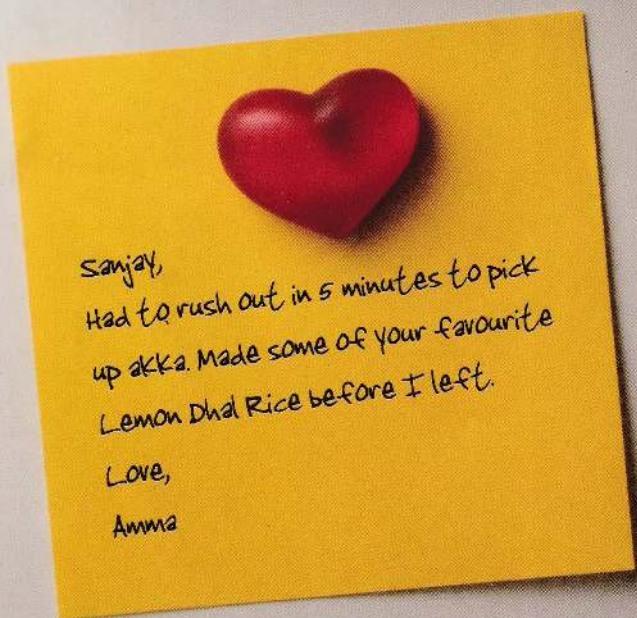 Sanjay,
Had to rush out in 5 minutes to pick
up akka. Made some of your favourite
Lemon Dhal Rice before I left.
Love,
Amma